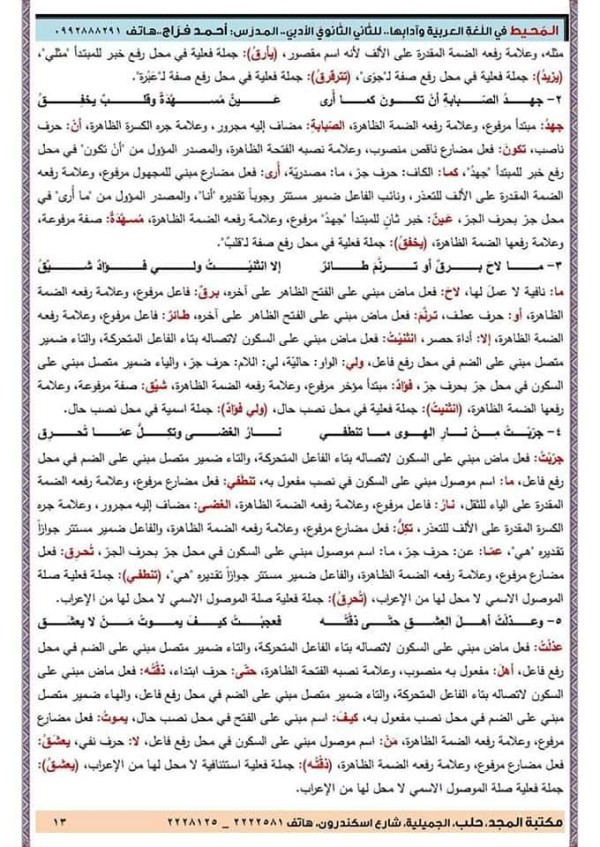 المحيط في اللغة العربية وآدابها.. للثاني الثانوي الأدبي.. المدرس: أحمد فراج.. هاتف ٠٩٩٢٨٨٨٢٩١
مثله، وعلامة رفعه الضمة المقدرة على الألف لأنه اسم مقصور، (يأرقُ): جملة فعلية في محل رفع خبر للمبتدأ "مثلي"،
(يزيدُ): جملة فعلية في محل رفع صفة لـ"جوًى"، (تترقرقُ): جملة فعلية في محل رفع صفة لـ"عَبْرة".
٢- جهدُ الصّبابةِ أنْ تكونَ كما أُرى عينٌ مسهّدةٌ وقلبٌ يخفقُ
جهدُ: مبتدأ مرفوع، وعلامة رفعه الضمة الظاهرة، الصّبابةِ: مضاف إليه مجرور، وعلامة جره الكسرة الظاهرة، أنْ: حرف
ناصب، تكونَ: فعل مضارع ناقص منصوب، وعلامة نصبه الفتحة الظاهرة، والمصدر المؤول من "أنْ تكون" في محل
رفع خبر للمبتدأ "جهدُ"، كما: الكاف: حرف جرّ، ما: مصدريّة، أُرى: فعل مضارع مبني للمجهول مرفوع، وعلامة رفعه
الضمة المقدرة على الألف للتعذر، ونائب الفاعل ضمير مستتر وجوباً تقديره "أنا"، والمصدر المؤول من "ما أُرى" في
محل جرّ بحرف الجرّ، عينٌ: خبر ثانٍ للمبتدأ "جهدُ" مرفوع، وعلامة رفعه الضمة الظاهرة، مسهّدةٌ: صفة مرفوعة،
وعلامة رفعها الضمة الظاهرة، (يخفقُ): جملة فعلية في محل رفع صفة لـ"قلبٌ".
٣- ما لاحَ برقٌ أو ترنّمَ طائرٌ إلا انثنيْتُ ولي فؤادٌ شيّقُ
ما: نافية لا عمل لها، لاحَ: فعل ماض مبني على الفتح الظاهر على آخره، برقٌ: فاعل مرفوع، وعلامة رفعه الضمة
الظاهرة، أو: حرف عطف، ترنّمَ: فعل ماض مبني على الفتح الظاهر على آخره، طائرٌ: فاعل مرفوع، وعلامة رفعه
الضمة الظاهرة، إلا: أداة حصر، انثنيْتُ: فعل ماض مبني على السكون لاتصاله بتاء الفاعل المتحركة، والتاء ضمير
متصل مبني على الضم في محل رفع فاعل، ولي: الواو: حاليّة، لي: اللام: حرف جرّ، والياء ضمير متصل مبني على
السكون في محل جرّ بحرف جرّ، فؤادٌ: مبتدأ مؤخر مرفوع، وعلامة رفعه الضمة الظاهرة، شيّق: صفة مرفوعة، وعلامة
رفعها الضمة الظاهرة، (انثنيتُ): جملة فعلية في محل نصب حال، (ولي فؤادٌ): جملة اسمية في محل نصب حال.
٤- جرّبْتُ مِنْ نارِ الهوى ما تنطفي نارُ الغضى وتكِلُّ عمّا تُحرِقُ
جرّبْتُ: فعل ماض مبني على السكون لاتصاله بتاء الفاعل المتحركة، والتاء ضمير متصل مبني على الضم في محل
رفع فاعل، ما: اسم موصول مبني على السكون في محل نصب مفعول به، تنطفي: فعل مضارع مرفوع، وعلامة رفعه الضمة
المقدرة على الياء للثقل، نارُ: فاعل مرفوع، وعلامة رفعه الضمة الظاهرة، الغضى: مضاف إليه مجرور، وعلامة جره
الكسرة المقدرة على الألف للتعذر، تكلُّ: فعل مضارع مرفوع، وعلامة رفعه الضمة الظاهرة، والفاعل ضمير مستتر جوازاً
تقديره "هي"، عمّا: عن: حرف جرّ، ما: اسم موصول مبني على السكون في محل جرّ بحرف الجرّ، تُحرِقُ: فعل
مضارع مرفوع، وعلامة رفعه الضمة الظاهرة، والفاعل ضمير مستتر جوازاً تقديره "هي"، (تنطفي): جملة فعلية صلة
الموصول الاسمي لا محل لها من الإعراب، (تُحرِقُ): جملة فعلية صلة الموصول الاسمي لا محل لها من الإعراب.
٥- وعذلْتُ أهلَ العِشقِ حتّى ذقْتُه فعجبْتُ كيفَ يموتُ مَنْ لا يعشقُ
عذلْتُ: فعل ماض مبني على السكون لاتصاله بتاء الفاعل المتحركة، والتاء ضمير متصل مبني على الضم في محل
رفع فاعل، أهلَ: مفعول به منصوب، وعلامة نصبه الفتحة الظاهرة، حتّى: حرف ابتداء، ذقْتُه: فعل ماض مبني على
السكون لاتصاله بتاء الفاعل المتحركة، والتاء ضمير متصل مبني على الضم في محل رفع فاعل، والهاء ضمير متصل
مبني على الضم في محل نصب مفعول به، كيفَ: اسم مبني على الفتح في محل نصب حال، يموتُ: فعل مضارع
مرفوع، وعلامة رفعه الضمة الظاهرة، مَنْ: اسم موصول مبني على السكون في محل رفع فاعل، لا: حرف نفي، يعشقُ:
فعل مضارع مرفوع، وعلامة رفعه الضمة الظاهرة، (ذقْتُه): جملة فعلية استئنافية لا محل لها من الإعراب، (يعشقُ):
جملة فعلية صلة الموصول الاسمي لا محل لها من الإعراب.
مكتبة المجد، حلب، الجميلية، شارع اسكندرون، هاتف ٢٢٢٢٥٨١ _ ٢٢٢٨١٢٥ ١٣